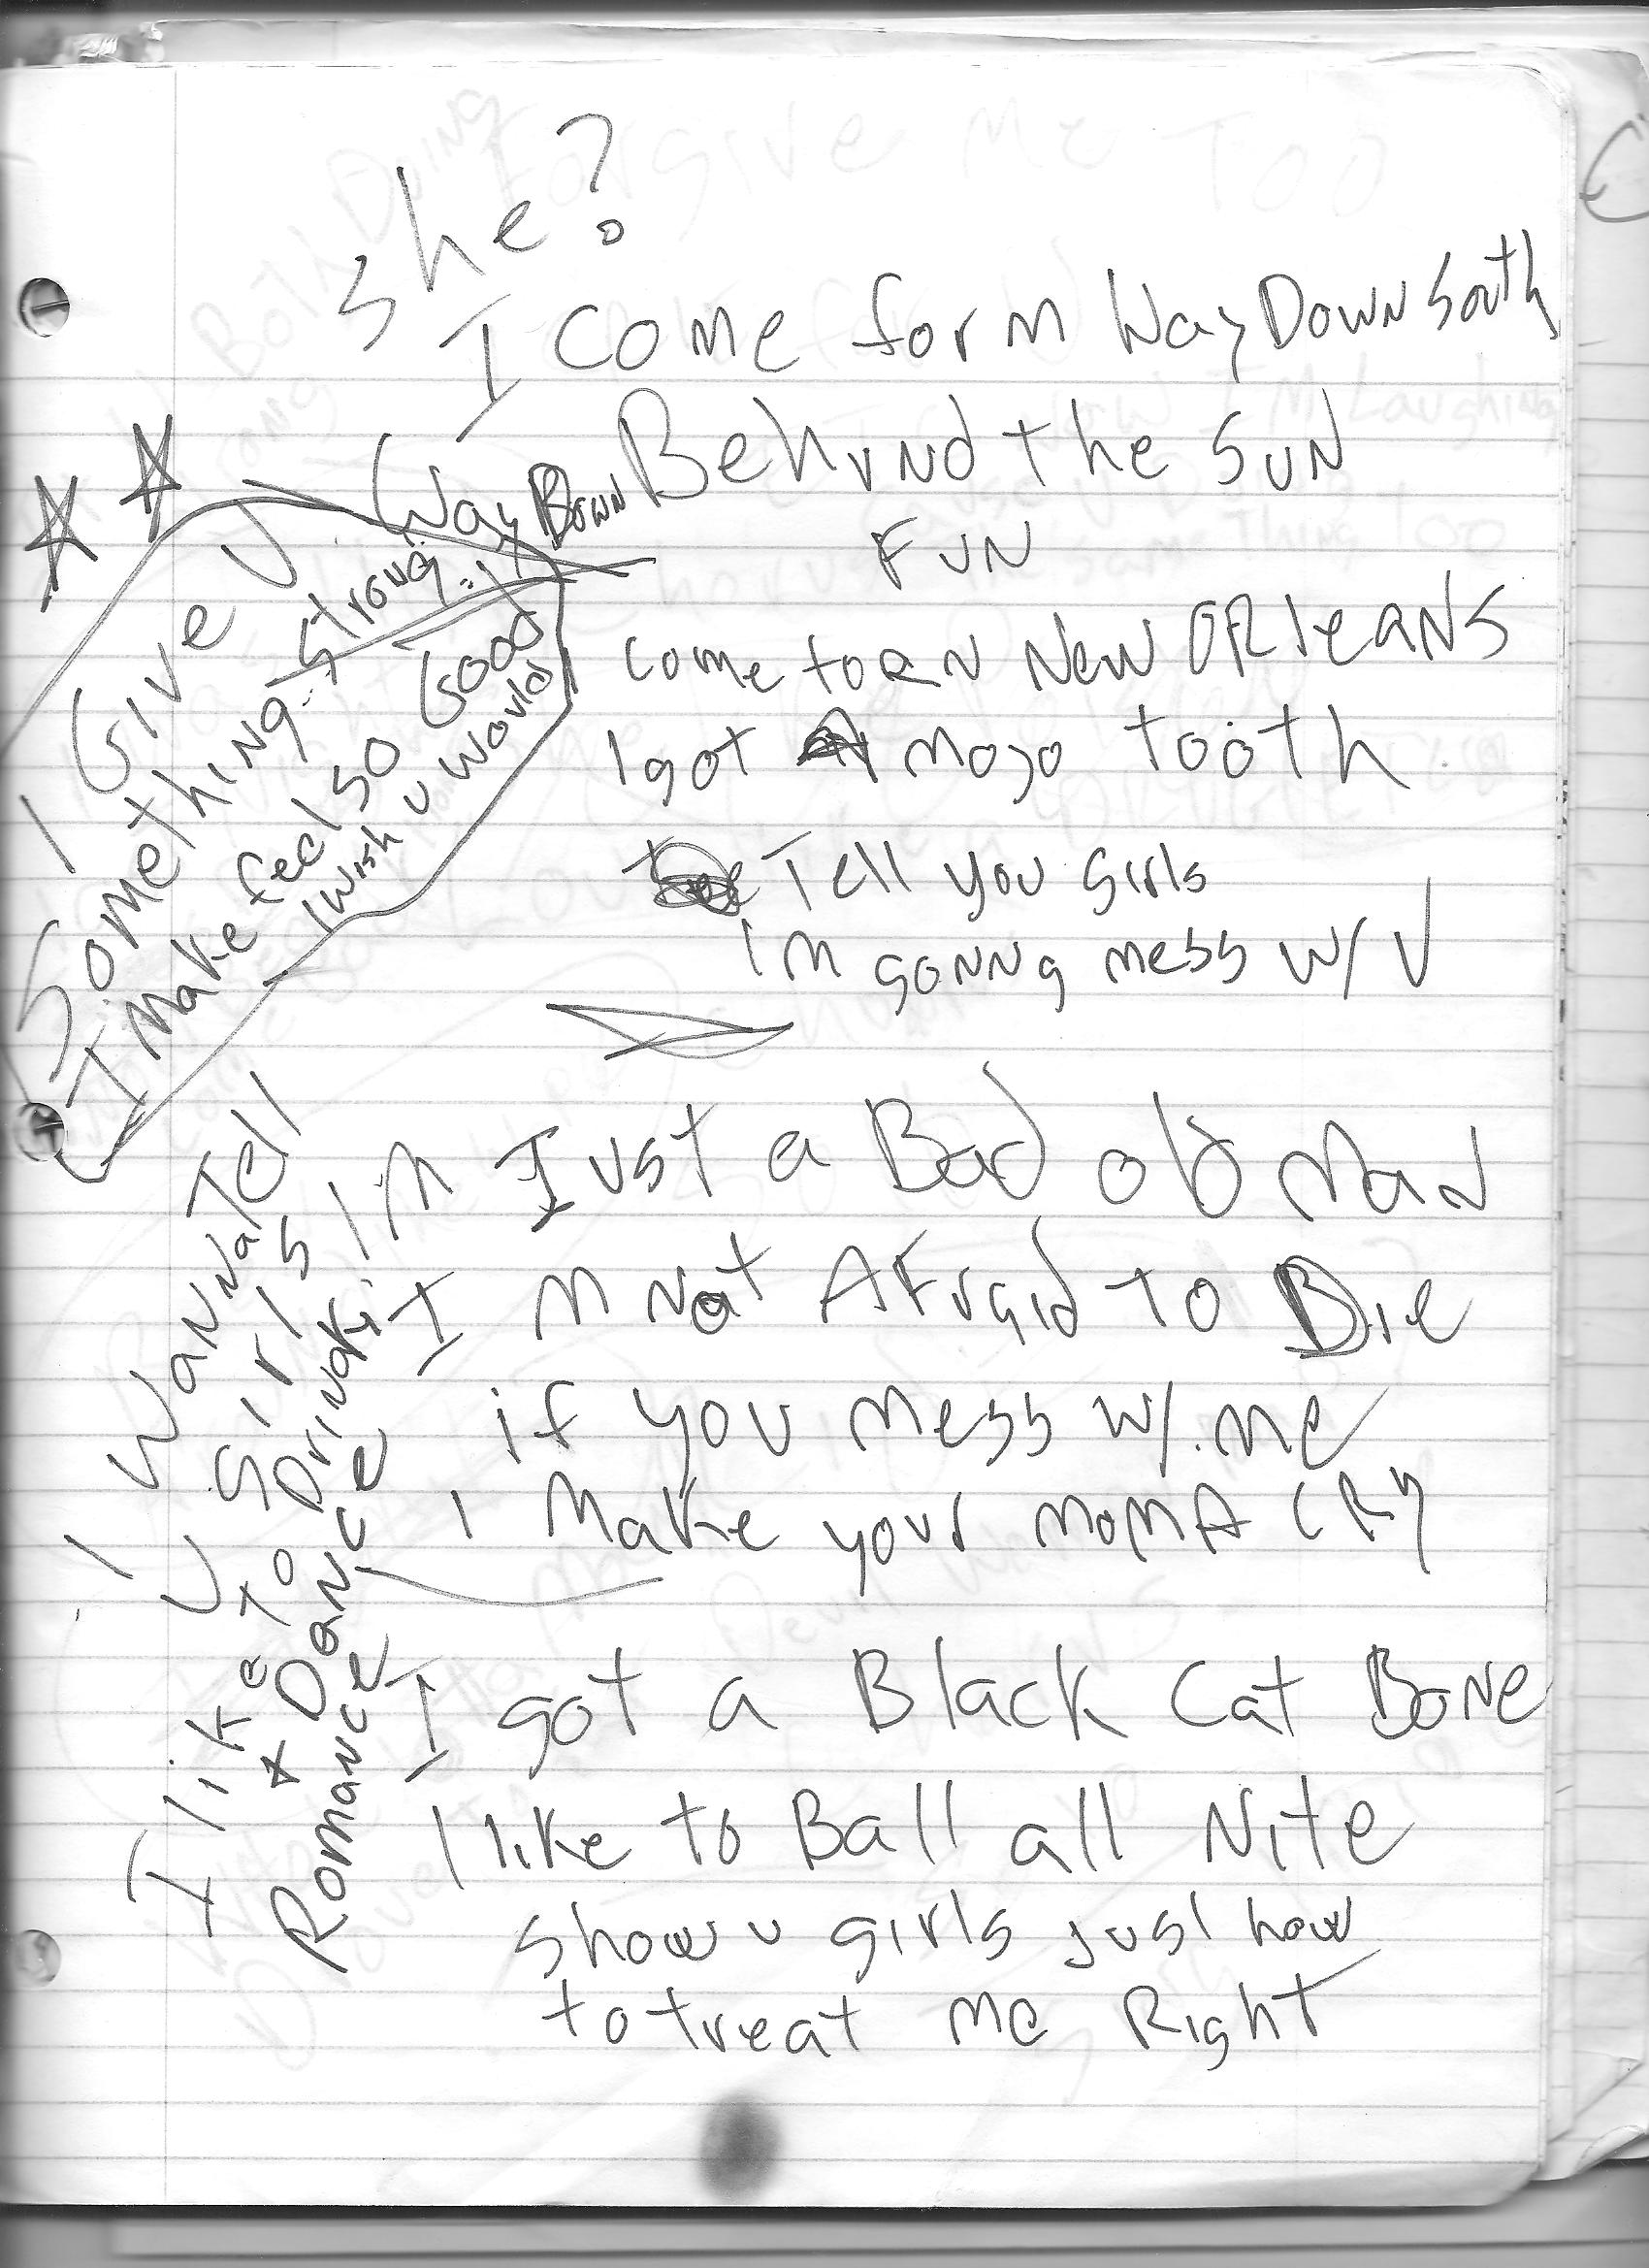 she?
I come form Way Down South
Way Down Behind the SUN
FUN
come to New ORleaNS
I got mojo tooth
Tell you girls
IM gonna mess w/ U
I'M Just a Bad old Man
I M Not AFraid to Die
if you mess w/. me
I Make your moMA CRy
I got a Black Cat Bone
I like to Ball all Nite
show u girls just how
to treat me Right
I Give U
Something Strong
I Make feel so Good
I wish u would
I WaNNa Tell
U girls
I like to Drink
+ Dance
Romance
Forgive Me Too